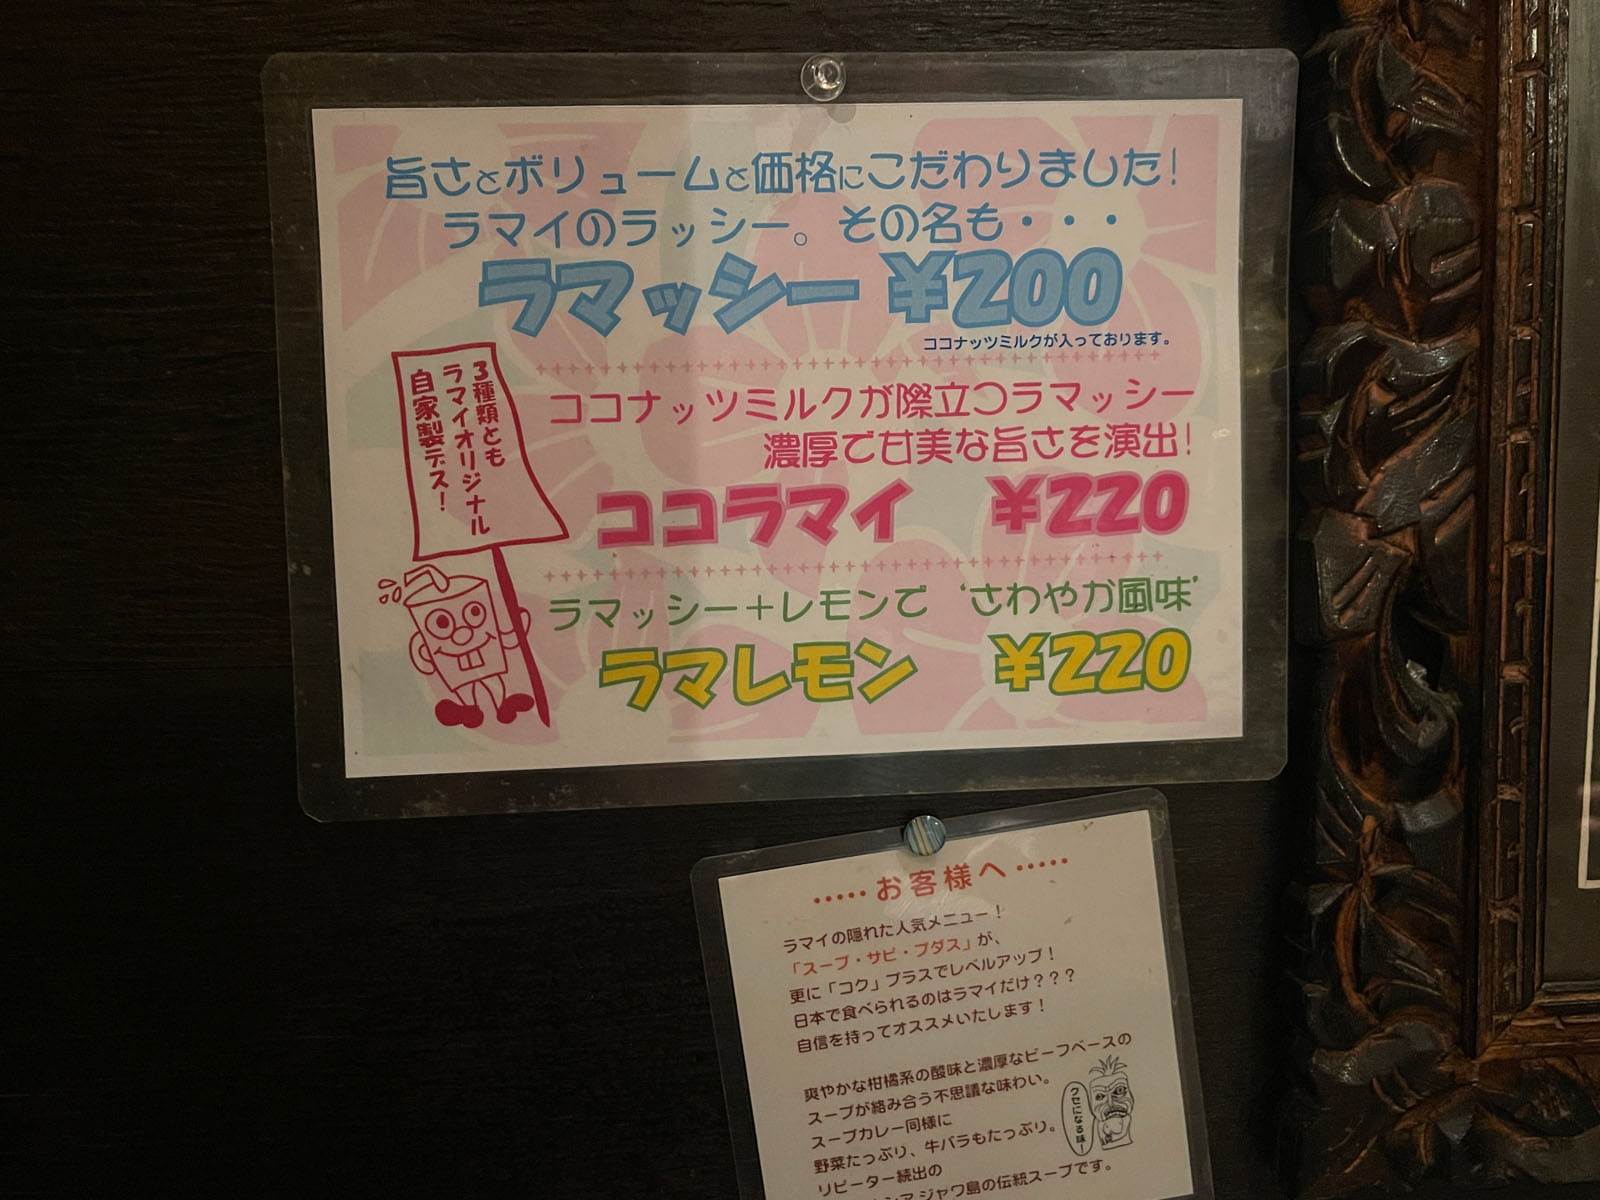 旨さとボリュームと価格にこだわりました!
ラマイのラッシー。その名も・・・
ラマッシー ¥200
ココナッツミルクが入っております。
3種類とも
ラマイオリジナル
自家製デス!
ココナッツミルクが際立つラマッシー
濃厚で甘美な旨さを演出!
ココラマイ ¥220
ラマッシー+レモンで ‘さわやか風味’
ラマレモン ¥220
・・・・・お客様へ・・・・・
ラマイの隠れた人気メニュー!
「スープ・サピ・プダス」が、
更に「コク」プラスでレベルアップ!
日本で食べられるのはラマイだけ???
自信を持ってオススメいたします!
爽やかな柑橘系の酸味と濃厚なビーフベースの
スープが絡み合う不思議な味わい。
スープカレー同様に
野菜たっぷり、牛バラもたっぷり。
リピーター続出の
ジャワ島の伝統スープです。
クセになる味ー